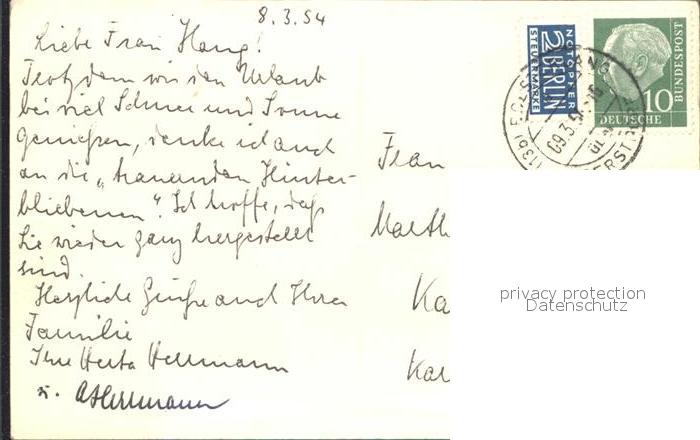 8.3.54
Liebe Frau Haug!
Trotzdem wir den Urlaub
bei viel Schnee und Sonne
genießen, denke ich auch
an die „trauernden Hinter-
bliebenen". Ich hoffe, daß
Sie wieder ganz hergestellt
sind.
Herzliche Grüße auch Ihrer
Familie
Ihre Herta Hermann
Frau
Marth
Ka
Kar
NOTOPFER
2 BERLIN
STEUERMARKE
10
DEUTSCHE
BUNDESPOST
09.3.54
privacy protection
Datenschutz